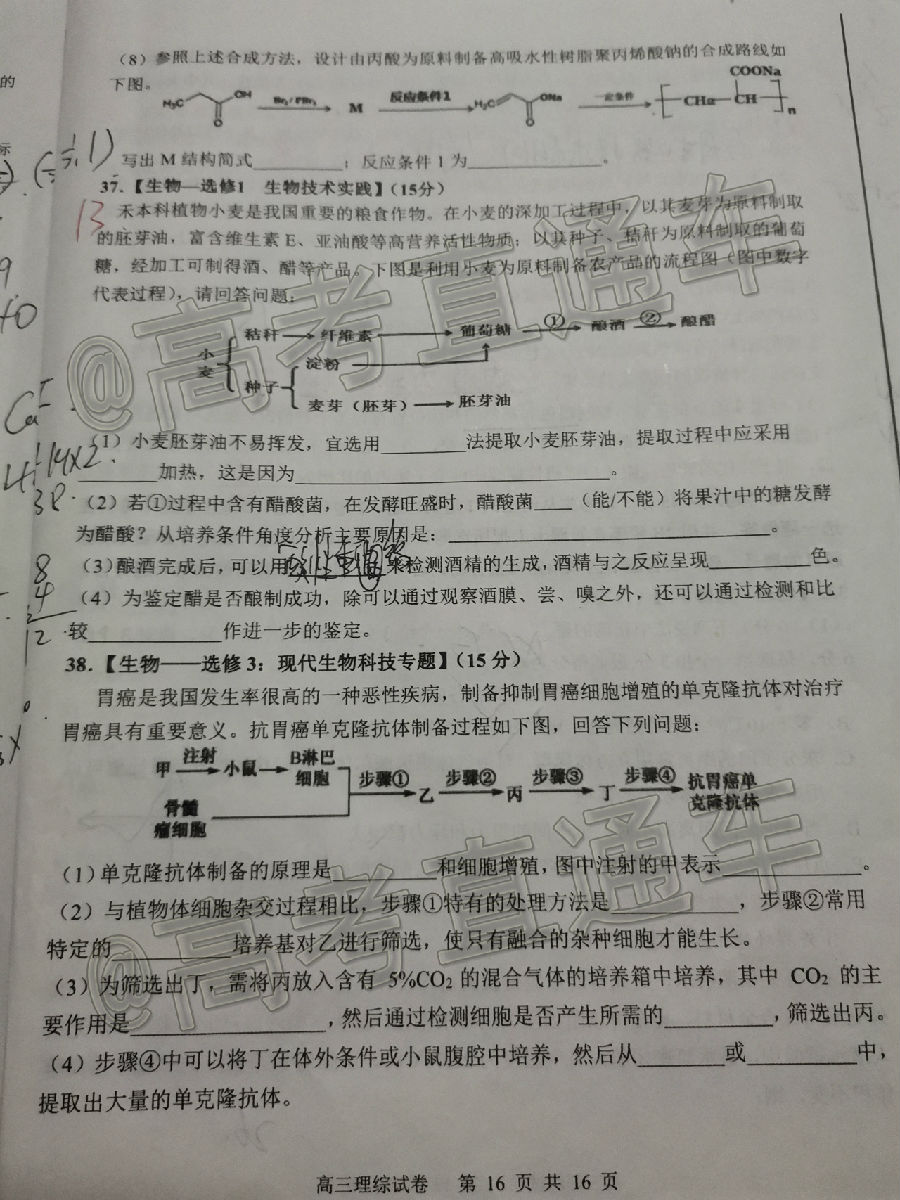 (8)参照上述合成方法，设计由丙酸为原料制备高吸水性树脂聚丙烯酸钠的合成路线如
下图。
H₃C OH O Br₂/PBr₃ M 反应条件1 H₂C ONa O 一定条件 CH₂ CH COONa n
写出 M 结构简式__________；反应条件 1 为______________。
37.【生物—选修1 生物技术实践】(15分)
13
禾本科植物小麦是我国重要的粮食作物。在小麦的深加工过程中，以其麦芽为原料制取
的胚芽油，富含维生素 E、亚油酸等高营养活性物质；以其种子、秸秆为原料制取的葡萄
糖，经加工可制得酒、醋等产品。下图是利用小麦为原料制备农产品的流程图（图中数字
代表过程），请回答问题：
小麦 秸秆 纤维素 葡萄糖 ① 酿酒 ② 酿醋
种子 淀粉
麦芽（胚芽） 胚芽油
(1) 小麦胚芽油不易挥发，宜选用________法提取小麦胚芽油，提取过程中应采用
________加热，这是因为______________________________。
(2) 若①过程中含有醋酸菌，在发酵旺盛时，醋酸菌____（能/不能）将果汁中的糖发酵
为醋酸？从培养条件角度分析主要原因是：______________________________。
(3)酿酒完成后，可以用 来检测酒精的生成，酒精与之反应呈现__________色。
(4) 为鉴定醋是否酿制成功，除可以通过观察酒膜、尝、嗅之外，还可以通过检测和比
较____________作进一步的鉴定。
8
4
12
38.【生物——选修 3：现代生物科技专题】(15 分)
胃癌是我国发生率很高的一种恶性疾病，制备抑制胃癌细胞增殖的单克隆抗体对治疗
胃癌具有重要意义。抗胃癌单克隆抗体制备过程如下图，回答下列问题：
甲 注射 小鼠 B淋巴细胞 步骤① 乙 步骤② 丙 步骤③ 丁 步骤④ 抗胃癌单克隆抗体
骨髓瘤细胞
(1)单克隆抗体制备的原理是__________和细胞增殖，图中注射的甲表示_____________。
(2) 与植物体细胞杂交过程相比，步骤①特有的处理方法是____________，步骤②常用
特定的___________培养基对乙进行筛选，使只有融合的杂种细胞才能生长。
(3) 为筛选出丁，需将丙放入含有 5%CO₂ 的混合气体的培养箱中培养，其中 CO₂ 的主
要作用是__________________，然后通过检测细胞是否产生所需的__________，筛选出丙。
(4) 步骤④中可以将丁在体外条件或小鼠腹腔中培养，然后从________或__________中，
提取出大量的单克隆抗体。
高三理综试卷 第 16 页 共 16 页
@高考直通车
@高考直通车